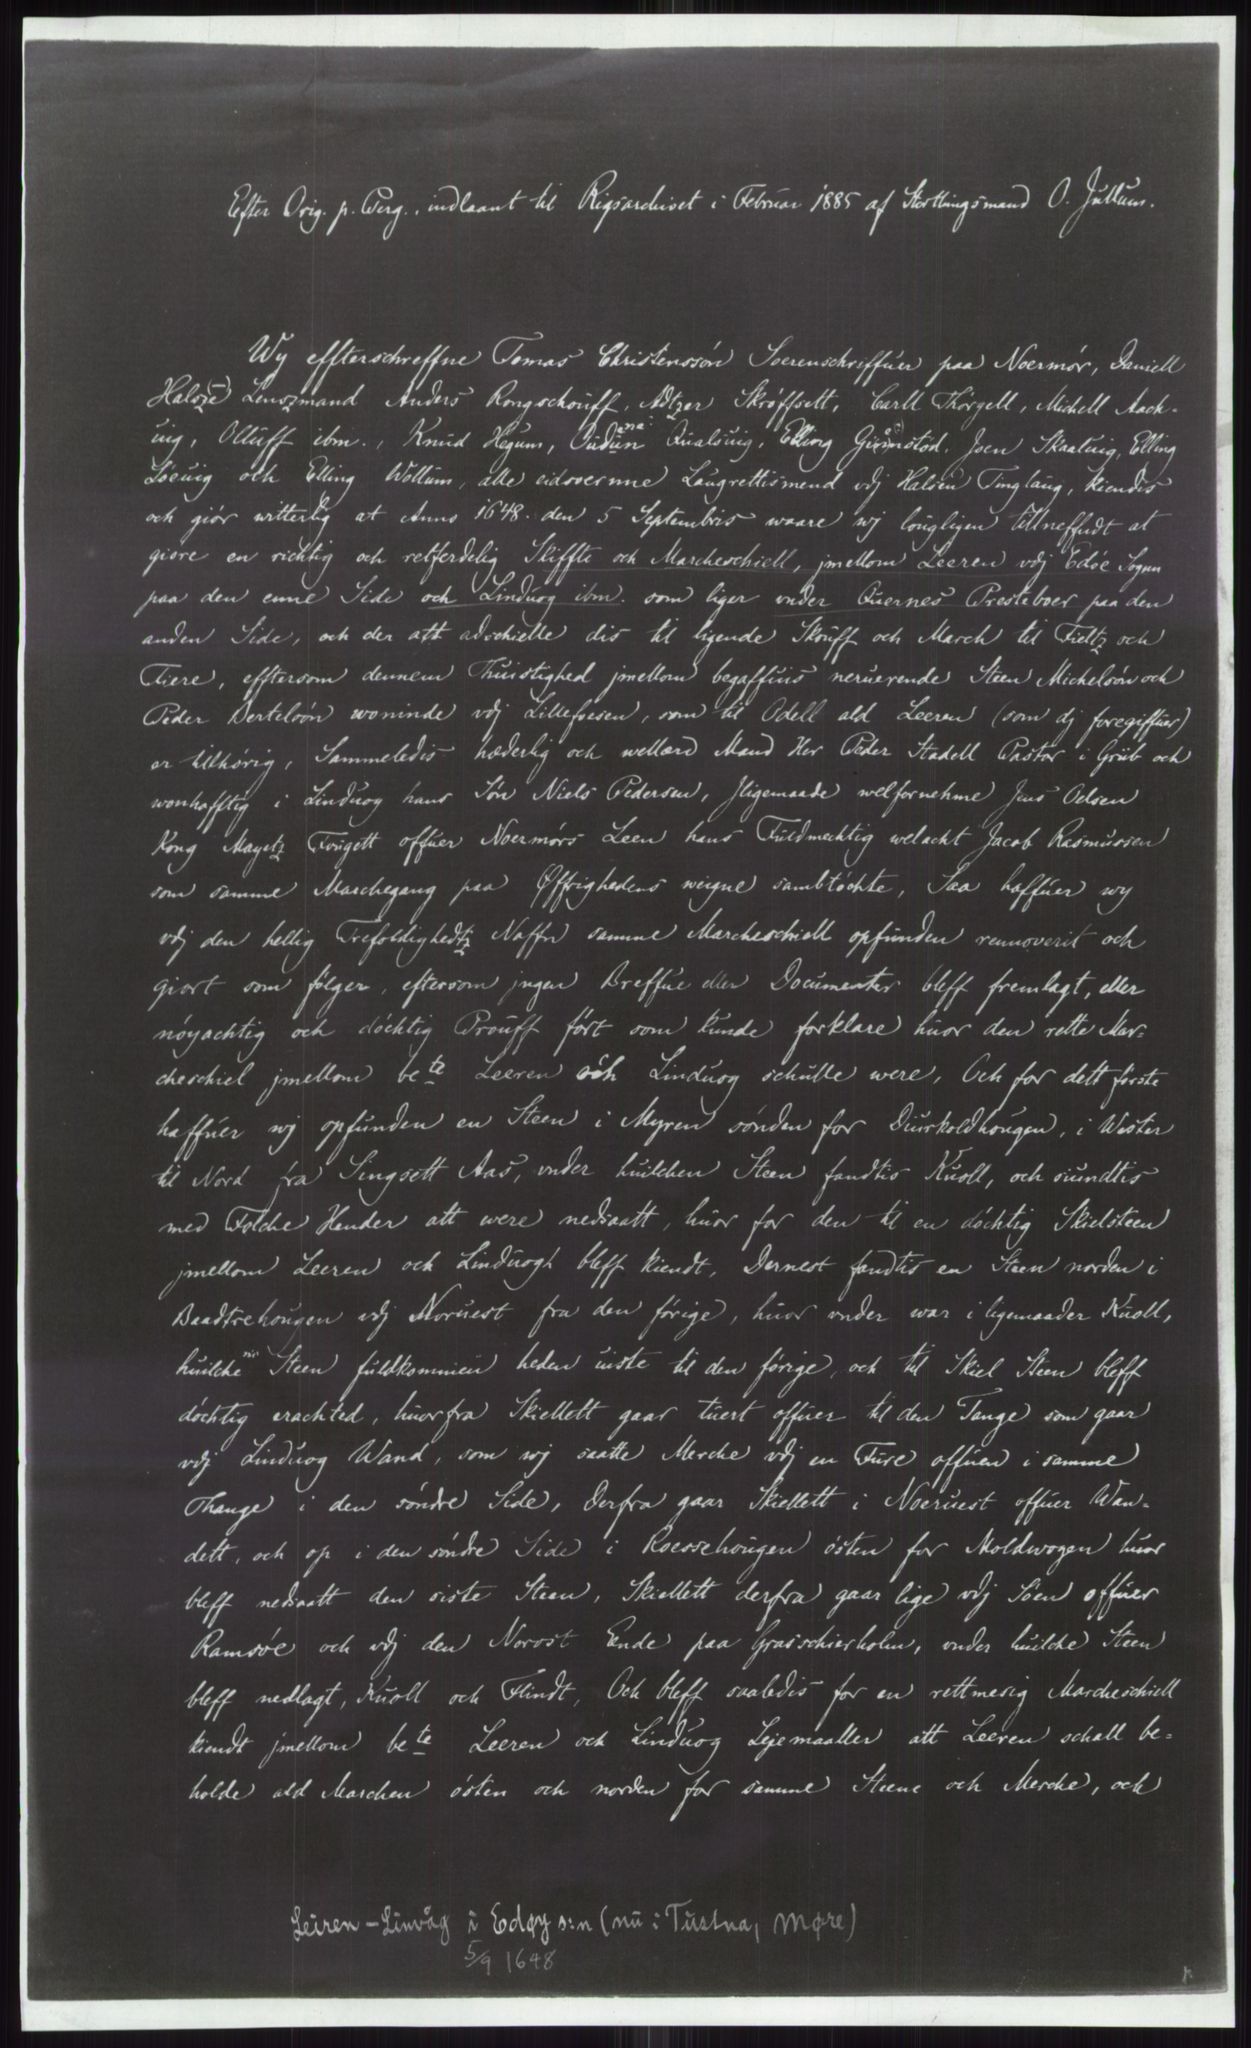 Efter Orig. p. Perg., indlaant til Rigsarchivet i Februar 1885 af Storthingsmand O. Jullum.
Wy effterschreffne Tomas Christenssøn Soerenschriffuer paa Noermør, Daniell
Halsze (-) Lenszmand Anders Rongschouff, Adtzer Skrøffsett, Carll Thorgell, Michell Aack-
uig, Olluff ibm., Knud Hegum, Oudun Qualsuig, Elling Giermstød, Joen Skaaluig, Elling
Løeuig och Elling Wollum, alle eidsoernne Laugrettismend vdj Halsen Tinglaug, kiendis
och giør witterlig at Anno 1648 den 5 Septembris waare wj lougligen tillneffndt at
giøre en richtig och retferdelig Skiffte och Marcheschiell, jmellom Leeren vdj Edøe Sogen
paa den enne Side och Linduog ibm. som liger vnder Quernes Presteboer paa den
anden Side, och der att adschielle dis til ligende Skouff och March til Fieltz och
Fiere, efftersom dennem Thuistighed jmellom begaffuis neruerende Steen Michelsøn och
Peder Bertelsøn woninde vdj Lillefoesen, som til Odell ald Leeren (som dj foregiffuer)
er tilhørig, Sammeledis hæderlig och wellærd Mand Her Peder Stadell Pastor i Grüb och
wonhafftig i Linduog hans Søn Niels Pedersen, Jligemaade welfornehme Jens Oelsen
Kong Mayetz Fougett offuer Noermørs Leen hans Fuldmechtig welacht Jacob Rasmussen
som samme Marchegang paa Øffrighedens weigne sambtøchte, Saa haffuer wy
vdj den hellig Trefoldighedtz Naffn samme Marcheschiell opfunden rennoverit och
giort som følger, eftersom jngen Breffue eller Documenter bleff fremlagt, eller
nøyachtig och døchtig Prouff ført som kunde forklare huor den rette Mar-
cheschiel jmellom bete Leeren och Linduog schulle were. Och for dett første
haffuer wj opfunden en Steen i Myren sønden for Diurkoldhougen, i Wester
til Nord fra Singsett Aas, vnder huilchen Steen fandtis Kuoll, och siundtis
med Folche Hender att were nedsatt, huor for den til en døchtig Skielsteen
jmellom Leeren och Linduogh bleff kiendt, Dernest fandtis en Steen norden i
Baadtrehougen vdj Noruest fra den førige, huor vnder war i ligemaader Kuoll,
huilche sic Steen fuldkommen heden uiste til den førige, och til Skiel Steen bleff
døchtig erachted, huorfra Skiellett gaar tuert offuer til den Tange som gaar
vdj Linduog Wand, som wj saatte Merche vdj en Fure offuen i samme
Thange i den søndre Side, Derfra gaar Skiellett i Noeruest offuer Wan-
dett, och op i den søndre Side i Roessehougen østen for Moldwogen huor
bleff nedsatt den siste Steen, Skiellett derfra gaar lige vdj Søen offuer
Ramsøe och vdj den Norost Ende paa Grasschierholm, vnder huilche Steen
bleff nedlagt, Kuoll och Flindt, Och bleff saaledis for en rettmesig Marcheschiell
kiendt jmellom bete Leeren och Linduog Lejemaaller att Leeren schall be-
holde ald Marchen østen och norden for samme Steene och Merche, och
Leiren - Linvåg i Edøy s:n (nu i Tustna, Møre)
5/9 1648